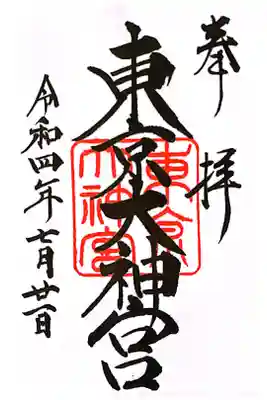 奉拝
東京大神宮
東京大神宮
令和四年七月廿一日